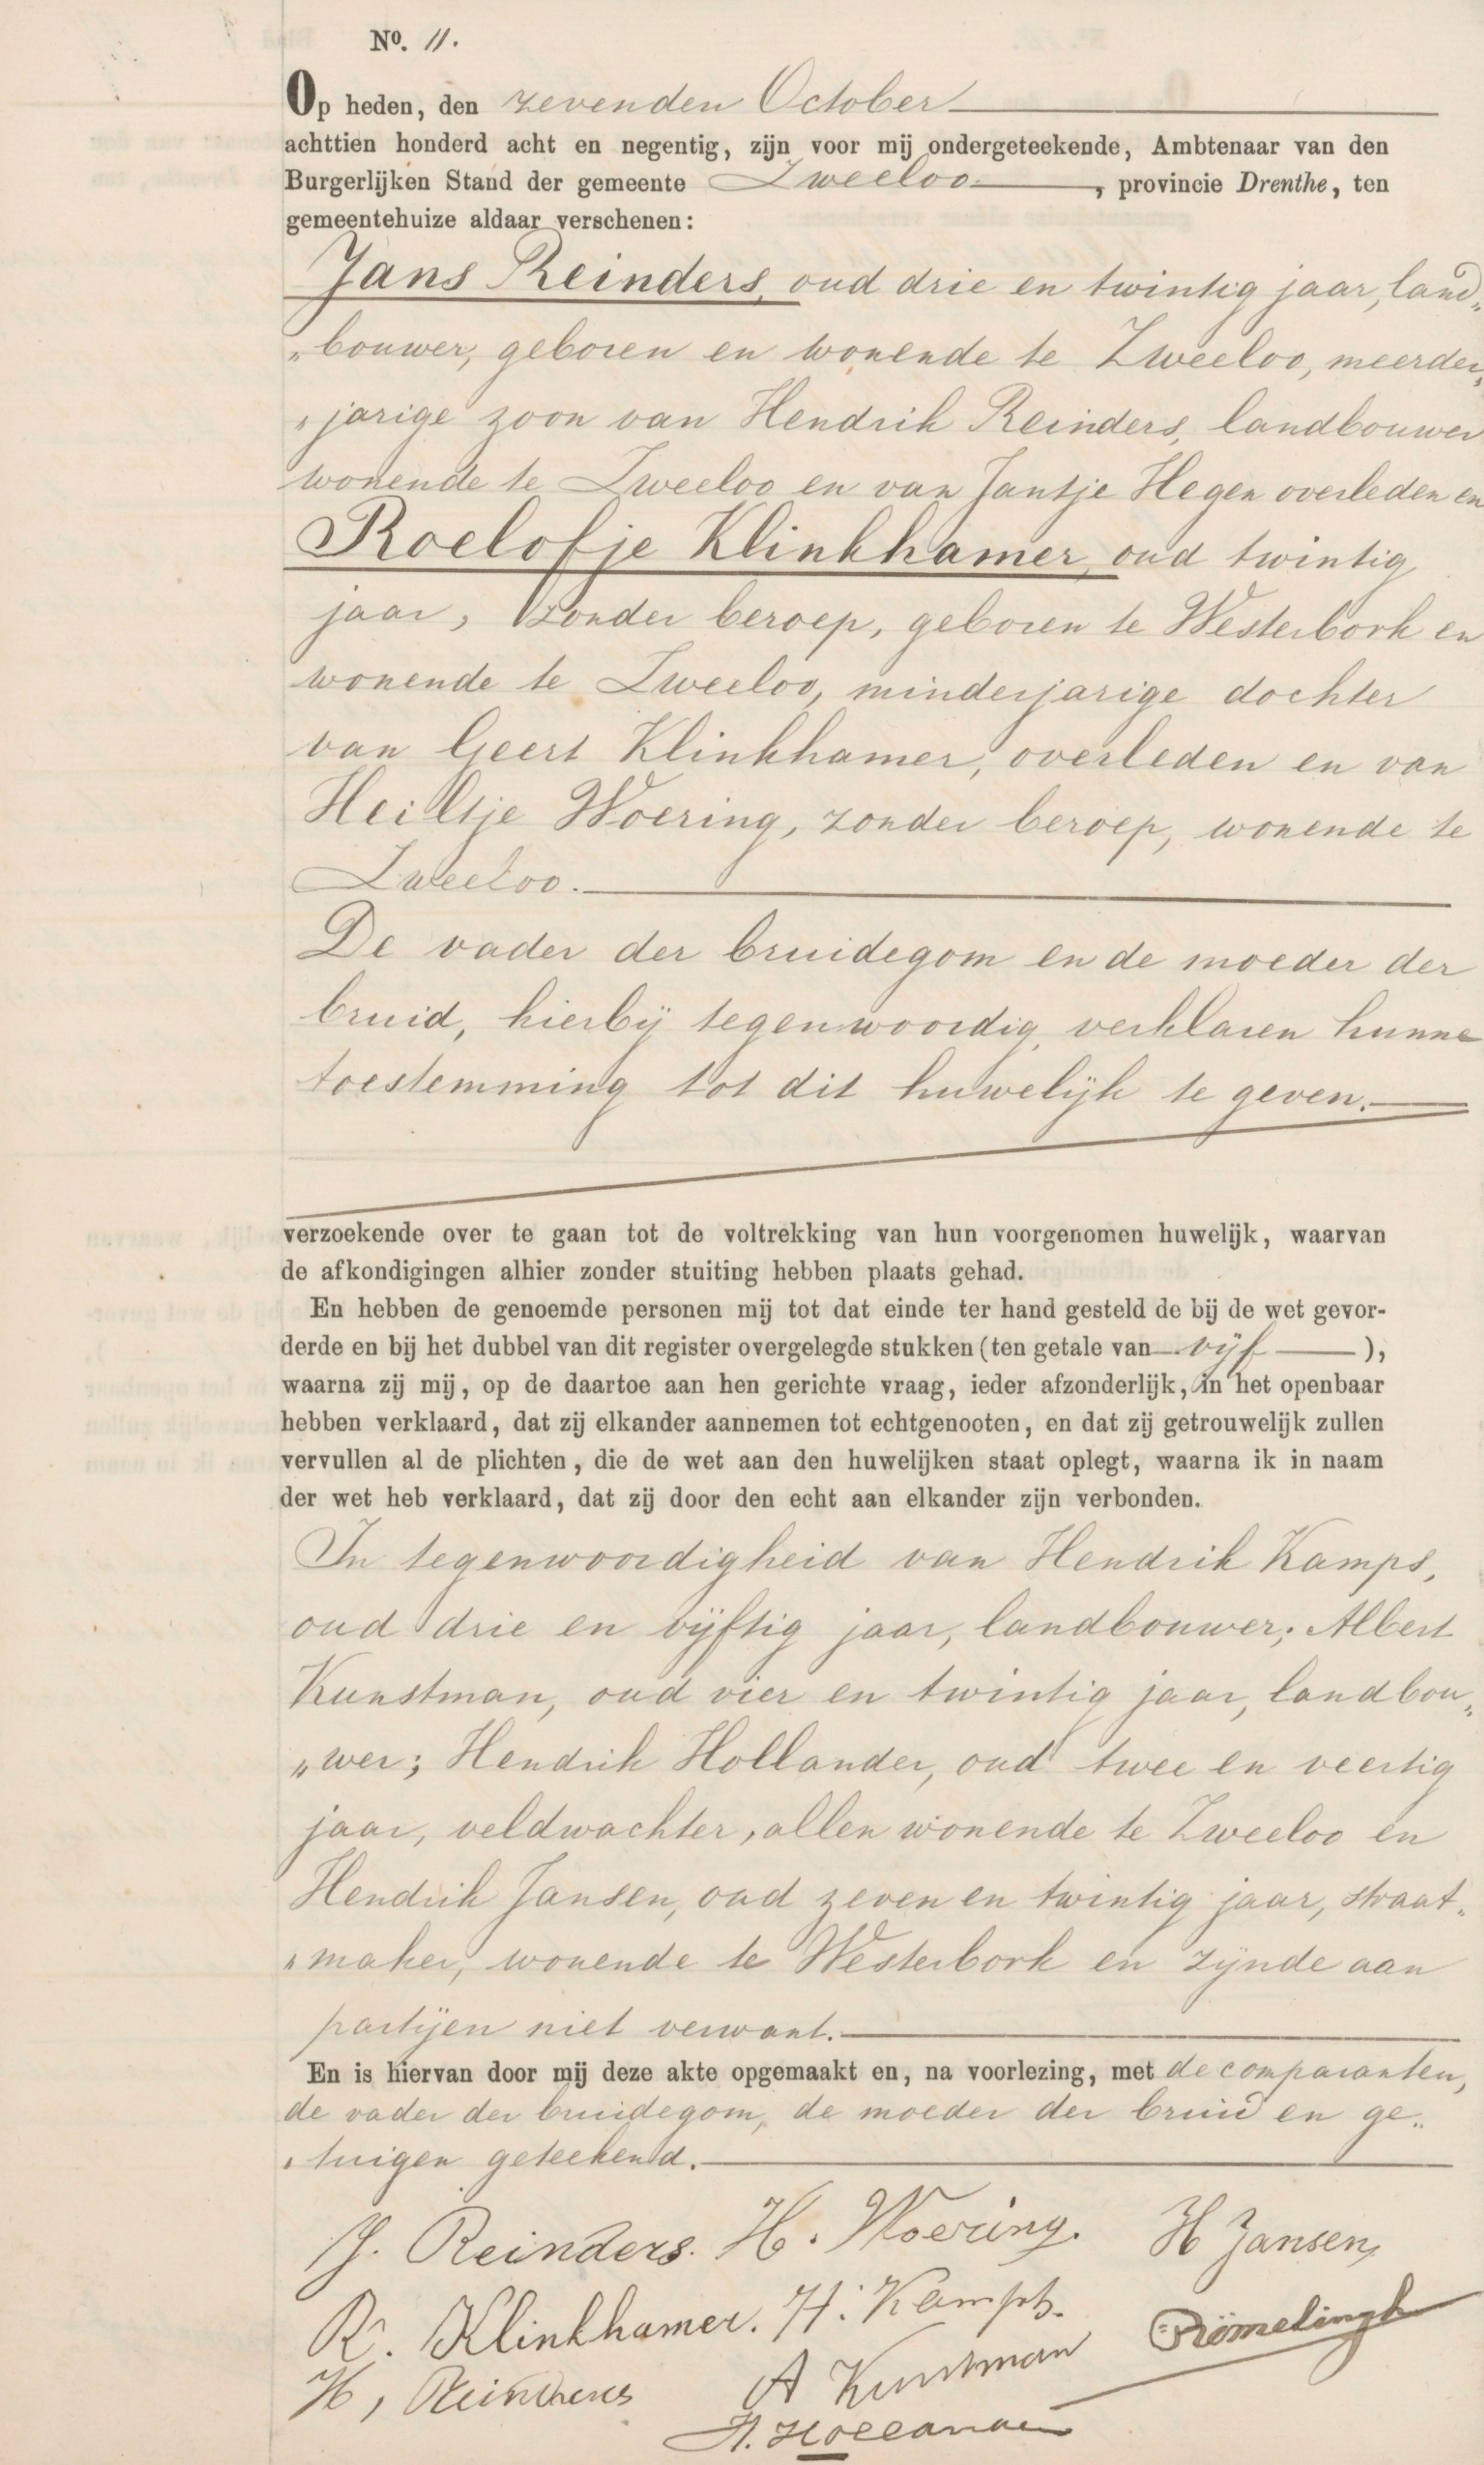 No. 11.
Op heden, den zevenden October
achttien honderd acht en negentig, zijn voor mij ondergeteekende, Ambtenaar van den
Burgerlijken Stand der gemeente Zweeloo, provincie Drenthe, ten
gemeentehuize aldaar verschenen:
Jans Reinders, oud drie en twintig jaar, land„
„bouwer, geboren en wonende te Zweeloo, meerder„
„jarige zoon van Hendrik Reinders, landbouwer
wonende te Zweeloo en van Jantje Hegen overleden en
Roelofje Klinkhamer, oud twintig
jaar, zonder beroep, geboren te Westerbork en
wonende te Zweeloo, minderjarige dochter
van Geert Klinkhamer, overleden en van
Heiltje Woering, zonder beroep, wonende te
Zweeloo.
De vader der bruidegom en de moeder der
bruid, hierbij tegenwoordig, verklaren hunne
toestemming tot dit huwelijk te geven.
verzoekende over te gaan tot de voltrekking van hun voorgenomen huwelijk, waarvan
de afkondigingen alhier zonder stuiting hebben plaats gehad.
En hebben de genoemde personen mij tot dat einde ter hand gesteld de bij de wet gevor-
derde en bij het dubbel van dit register overgelegde stukken (ten getale van vijf),
waarna zij mij, op de daartoe aan hen gerichte vraag, ieder afzonderlijk, in het openbaar
hebben verklaard, dat zij elkander aannemen tot echtgenooten, en dat zij getrouwelijk zullen
vervullen al de plichten, die de wet aan den huwelijken staat oplegt, waarna ik in naam
der wet heb verklaard, dat zij door den echt aan elkander zijn verbonden.
In tegenwoordigheid van Hendrik Kamps,
oud drie en vijftig jaar, landbouwer; Albert
Kunstman, oud vier en twintig jaar, landbou„
„wer; Hendrik Hollander, oud twee en veertig
jaar, veldwachter, allen wonende te Zweeloo en
Hendrik Jansen, oud zeven en twintig jaar, straat„
„maker, wonende te Westerbork en zijnde aan
partijen niet verwant.
En is hiervan door mij deze akte opgemaakt en, na voorlezing, met de comparanten,
de vader der bruidegom, de moeder der bruid en ge„
„tuigen geteekend.
J. Reinders. H. Woering. H Jansen,
R. Klinkhamer. H. Kamps. Römelingh
H, Reinders A Kunstman
H. Hollander